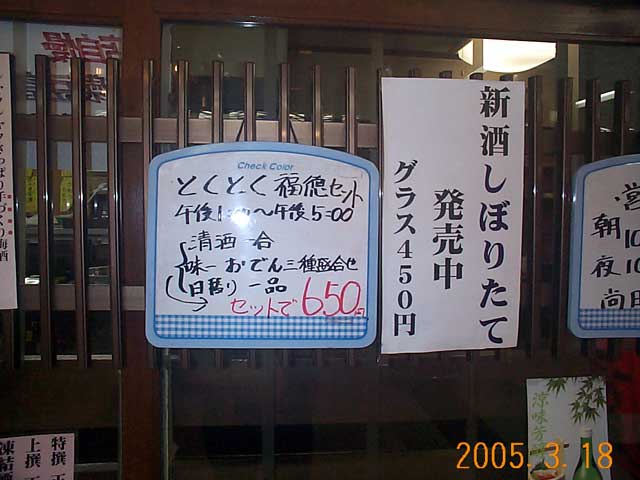 Check Color
とくとく福徳セット
午後1:00～午後5:00
清酒一合
味一おでん三種盛合せ
日替り一品
セットで650円
新酒しぼりたて
発売中
グラス450円
朝10
夜10
特撰
上撰
2005. 3. 18